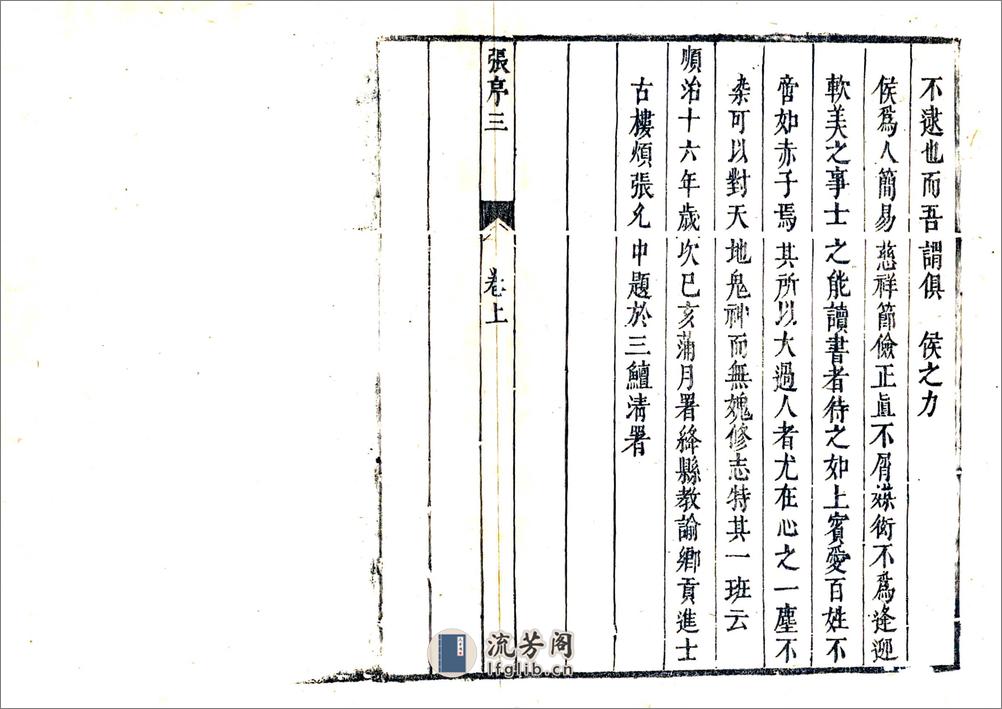 不逮也而吾謂俱　侯之力
侯爲人簡易慈祥節儉正眞不屑媒衒不爲逢迎
軟美之事士之能讀書者待之如上賓愛百姓不
啻如赤子焉其所以大過人者尤在心之一塵不
染可以對天地鬼神而無媿修志特其一班云
順治十六年歲次己亥蒲月署絳縣教諭鄉貢進士
古樓煩張允中題於三鱣清署
張序三
卷上
流芳阁
lfglib.cn